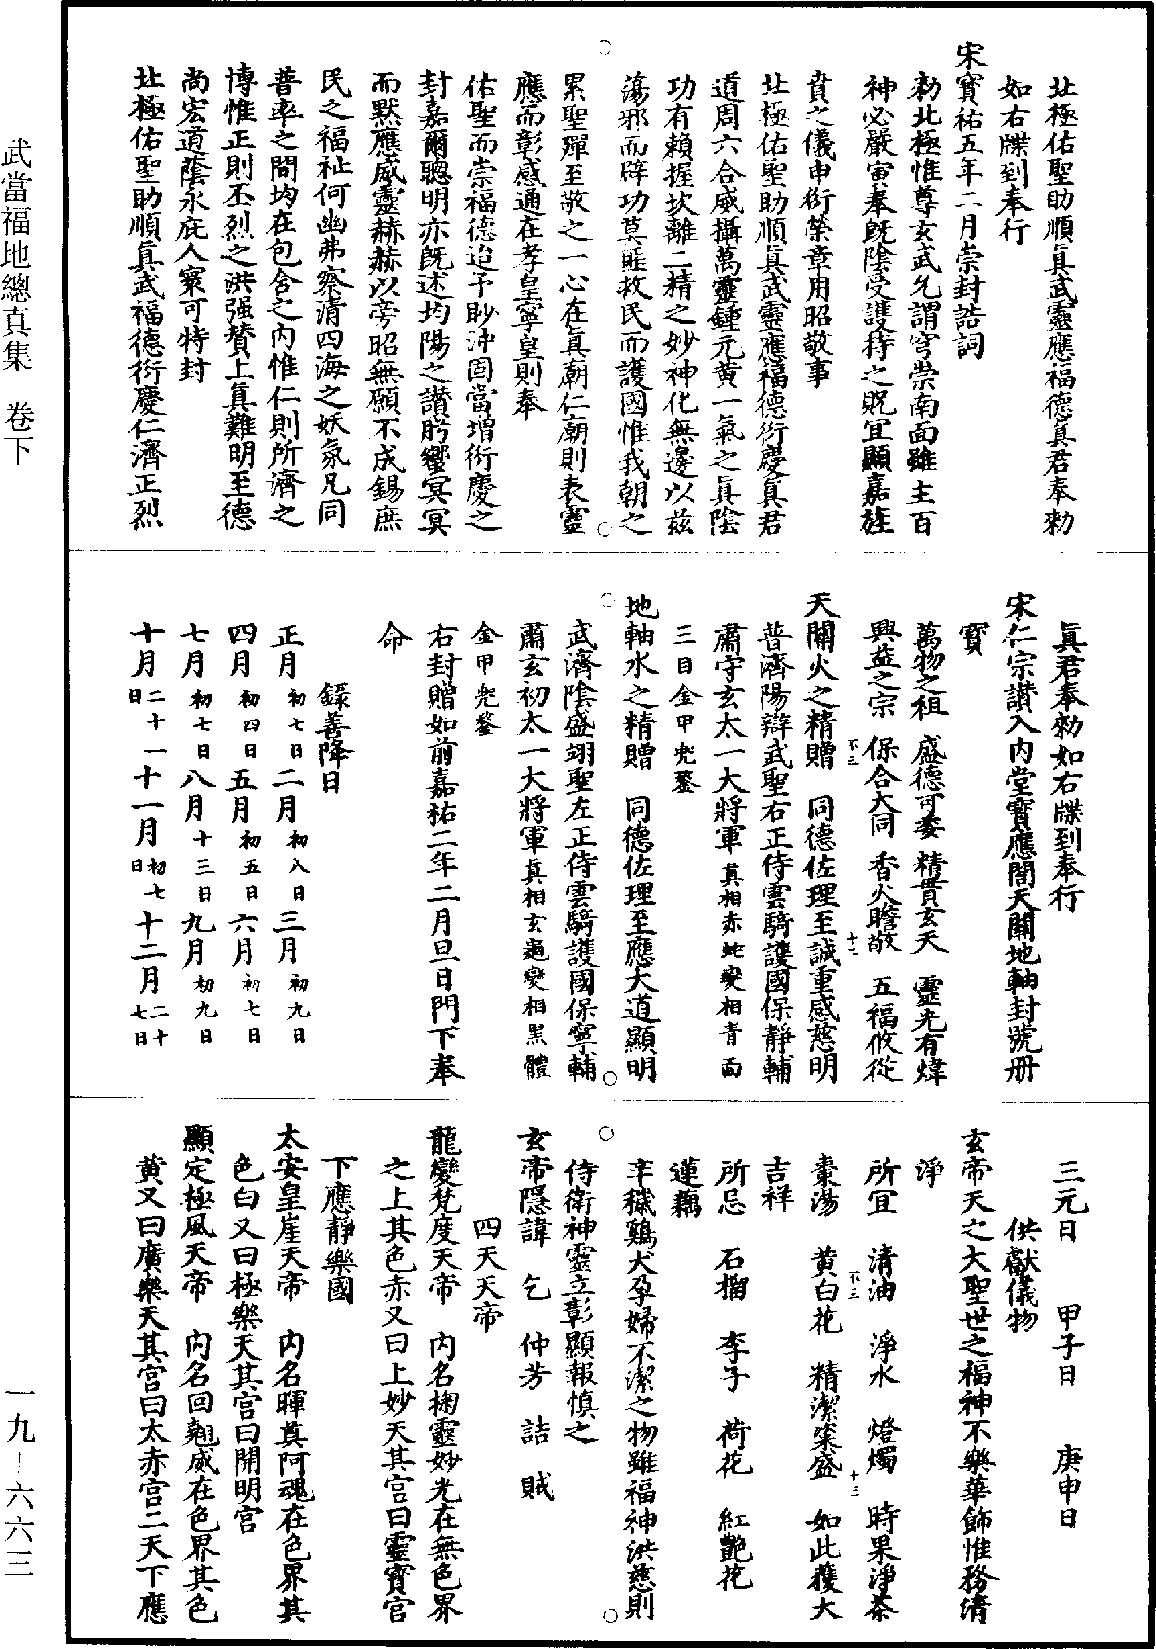 北極佑聖助順真武靈應福德真君奉勑
如右牒到奉行
宋寶祐五年二月崇封誥詞
勑北極惟尊玄武允謂穹崇南面雖主百
神必嚴寅奉旣陰受護持之貺宜顯嘉旌
賁之儀申衍榮章用昭敬事
北極佑聖助順真武靈應福德衍慶真君
道周六合威攝萬靈鍾元黃一氣之真陰
功有賴握坎離二精之妙神化無邊以兹
蕩邪而降功莫匪救民而護國惟我朝之
累聖殫至敬之一心在真廟仁廟則表靈
應而彰感通在孝皇寧皇則奉
佑聖而崇福德迨予眇沖固當增衍慶之
封嘉爾聰明亦旣述均陽之讃肹蠁冥冥
而黙應威靈赫赫以旁昭無願不成錫庶
民之福祉何幽弗察清四海之妖氛凡同
普率之間均在包含之內惟仁則所濟之
博惟正則丕烈之洪强贊上真難明至德
尚宏道蔭永庇人寰可特封
北極佑聖助順真武福德衍慶仁濟正烈
真君奉勑如右牒到奉行
宋仁宗讃入內堂寶應閣天關地軸封號册
寳
萬物之祖 盛德可委 精貫玄天 靈光有煒
興益之宗 保合大同 香火瞻敬 五福攸從
天關火之精贈 同德佐理至誠重感慈明
普濟陽辯武聖右正侍雲騎護國保靜輔
肅守玄太一大將軍真相赤蛇變相青面
三目金甲兜鍪
地軸水之精贈 同德佐理至應大道顯明
武濟陰盛翊聖左正侍雲騎護國保寧輔
肅玄初太一大將軍真相玄龜變相黑體
金甲兜鍪
右封贈如前嘉祐二年二月旦日門下奉
命
錄善降日
正月初七日二月初八日三月初九日
四月初四日五月初五日六月初七日
七月初七日八月十三日九月初九日
十月二十一日十一月初七日十二月二十七日
三元日 甲子日 庚申日
供獻儀物
玄帝天之大聖世之福神不樂華飾惟務清
淨
所宜 清油 淨水 燈燭 時果淨茶
棗湯 黃白花 精潔粢盛 如此獲大
吉祥
所忌 石榴 李子 荷花 紅艷花
蓮藕
辛穢鷄犬孕婦不潔之物雖福神洪慈則
侍衛神靈立彰顯報慎之
玄帝隱諱 乞 仲芳 詰 賊
四天天帝
龍變梵度天帝 內名掬靈妙光在無色界
之上其色赤又曰上妙天其宮曰靈寶宮
下應靜樂國
太安皇崖天帝 內名暉真阿魂在色界其
色白又曰極樂天其宮曰開明宮
顯定極風天帝 內名回翹威在色界其色
黃又曰廣樂天其宮曰太赤宮二天下應
武當福地總真集 卷下
一九－六六三